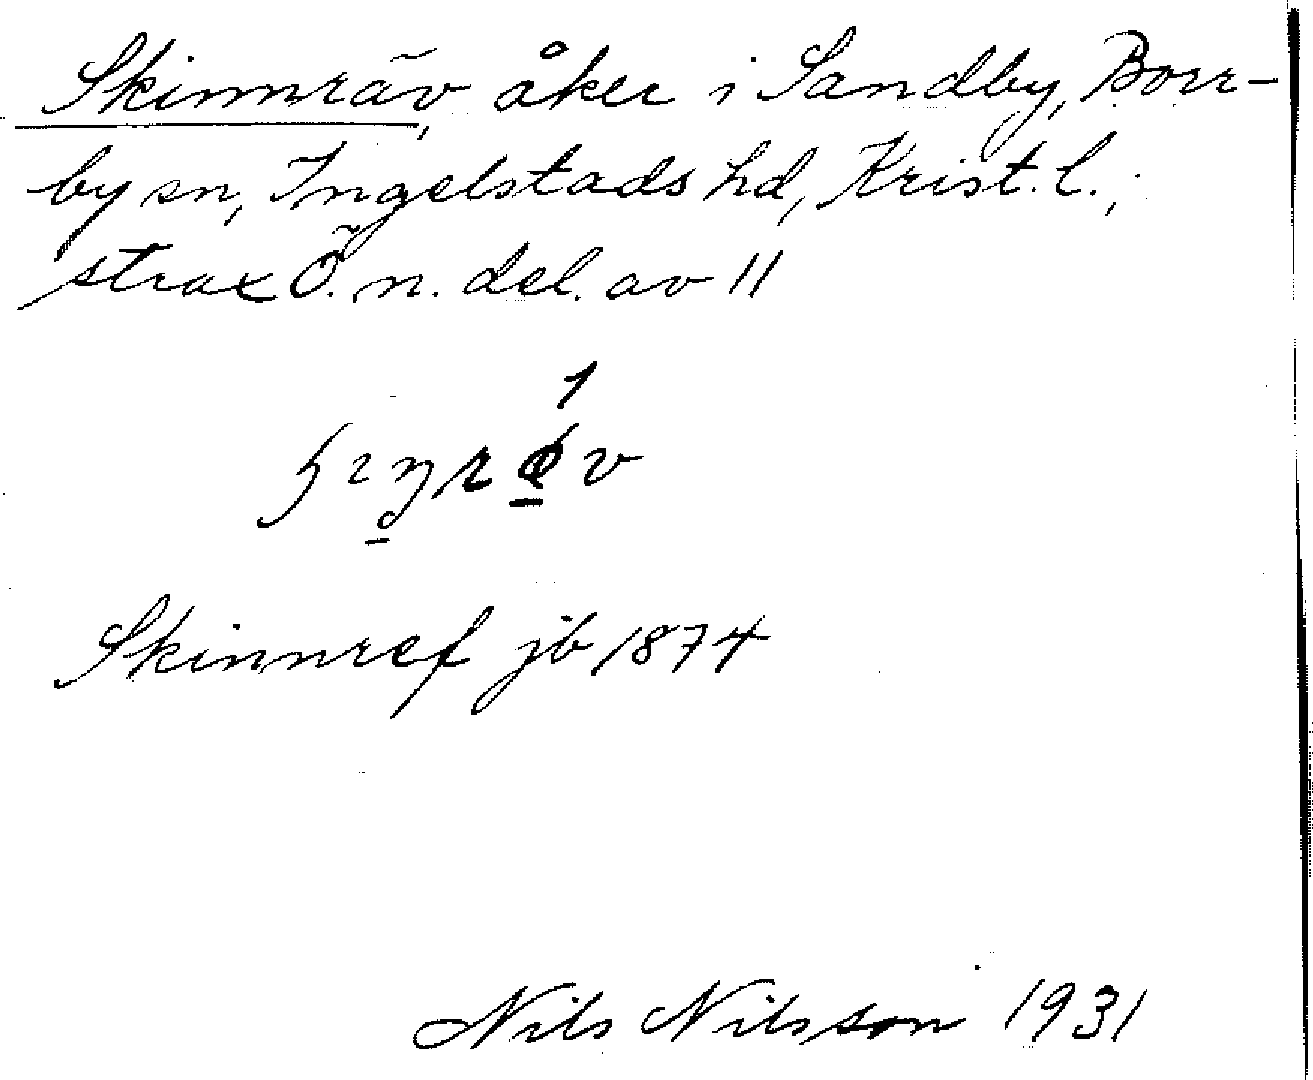 Skinnräv, åker i Sandby, Borr-
by sn, Ingelstads hd, Krist. l.,
strax Ö. n. del. av 11
Skinnref jb 1874
Nils Nilsson 1931